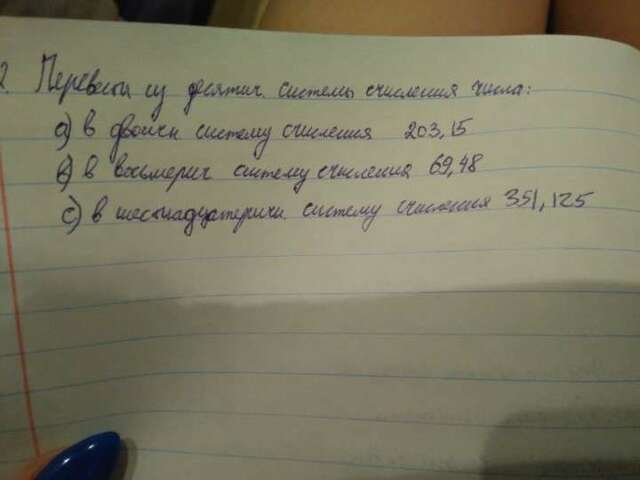 2. Перевести из десятич. системы счисления числа:
a) в двоичн систему счисления 203,15
в) в восьмерич систему счисления 69,48
с) в шестнадцатеричн систему счисления 351,125